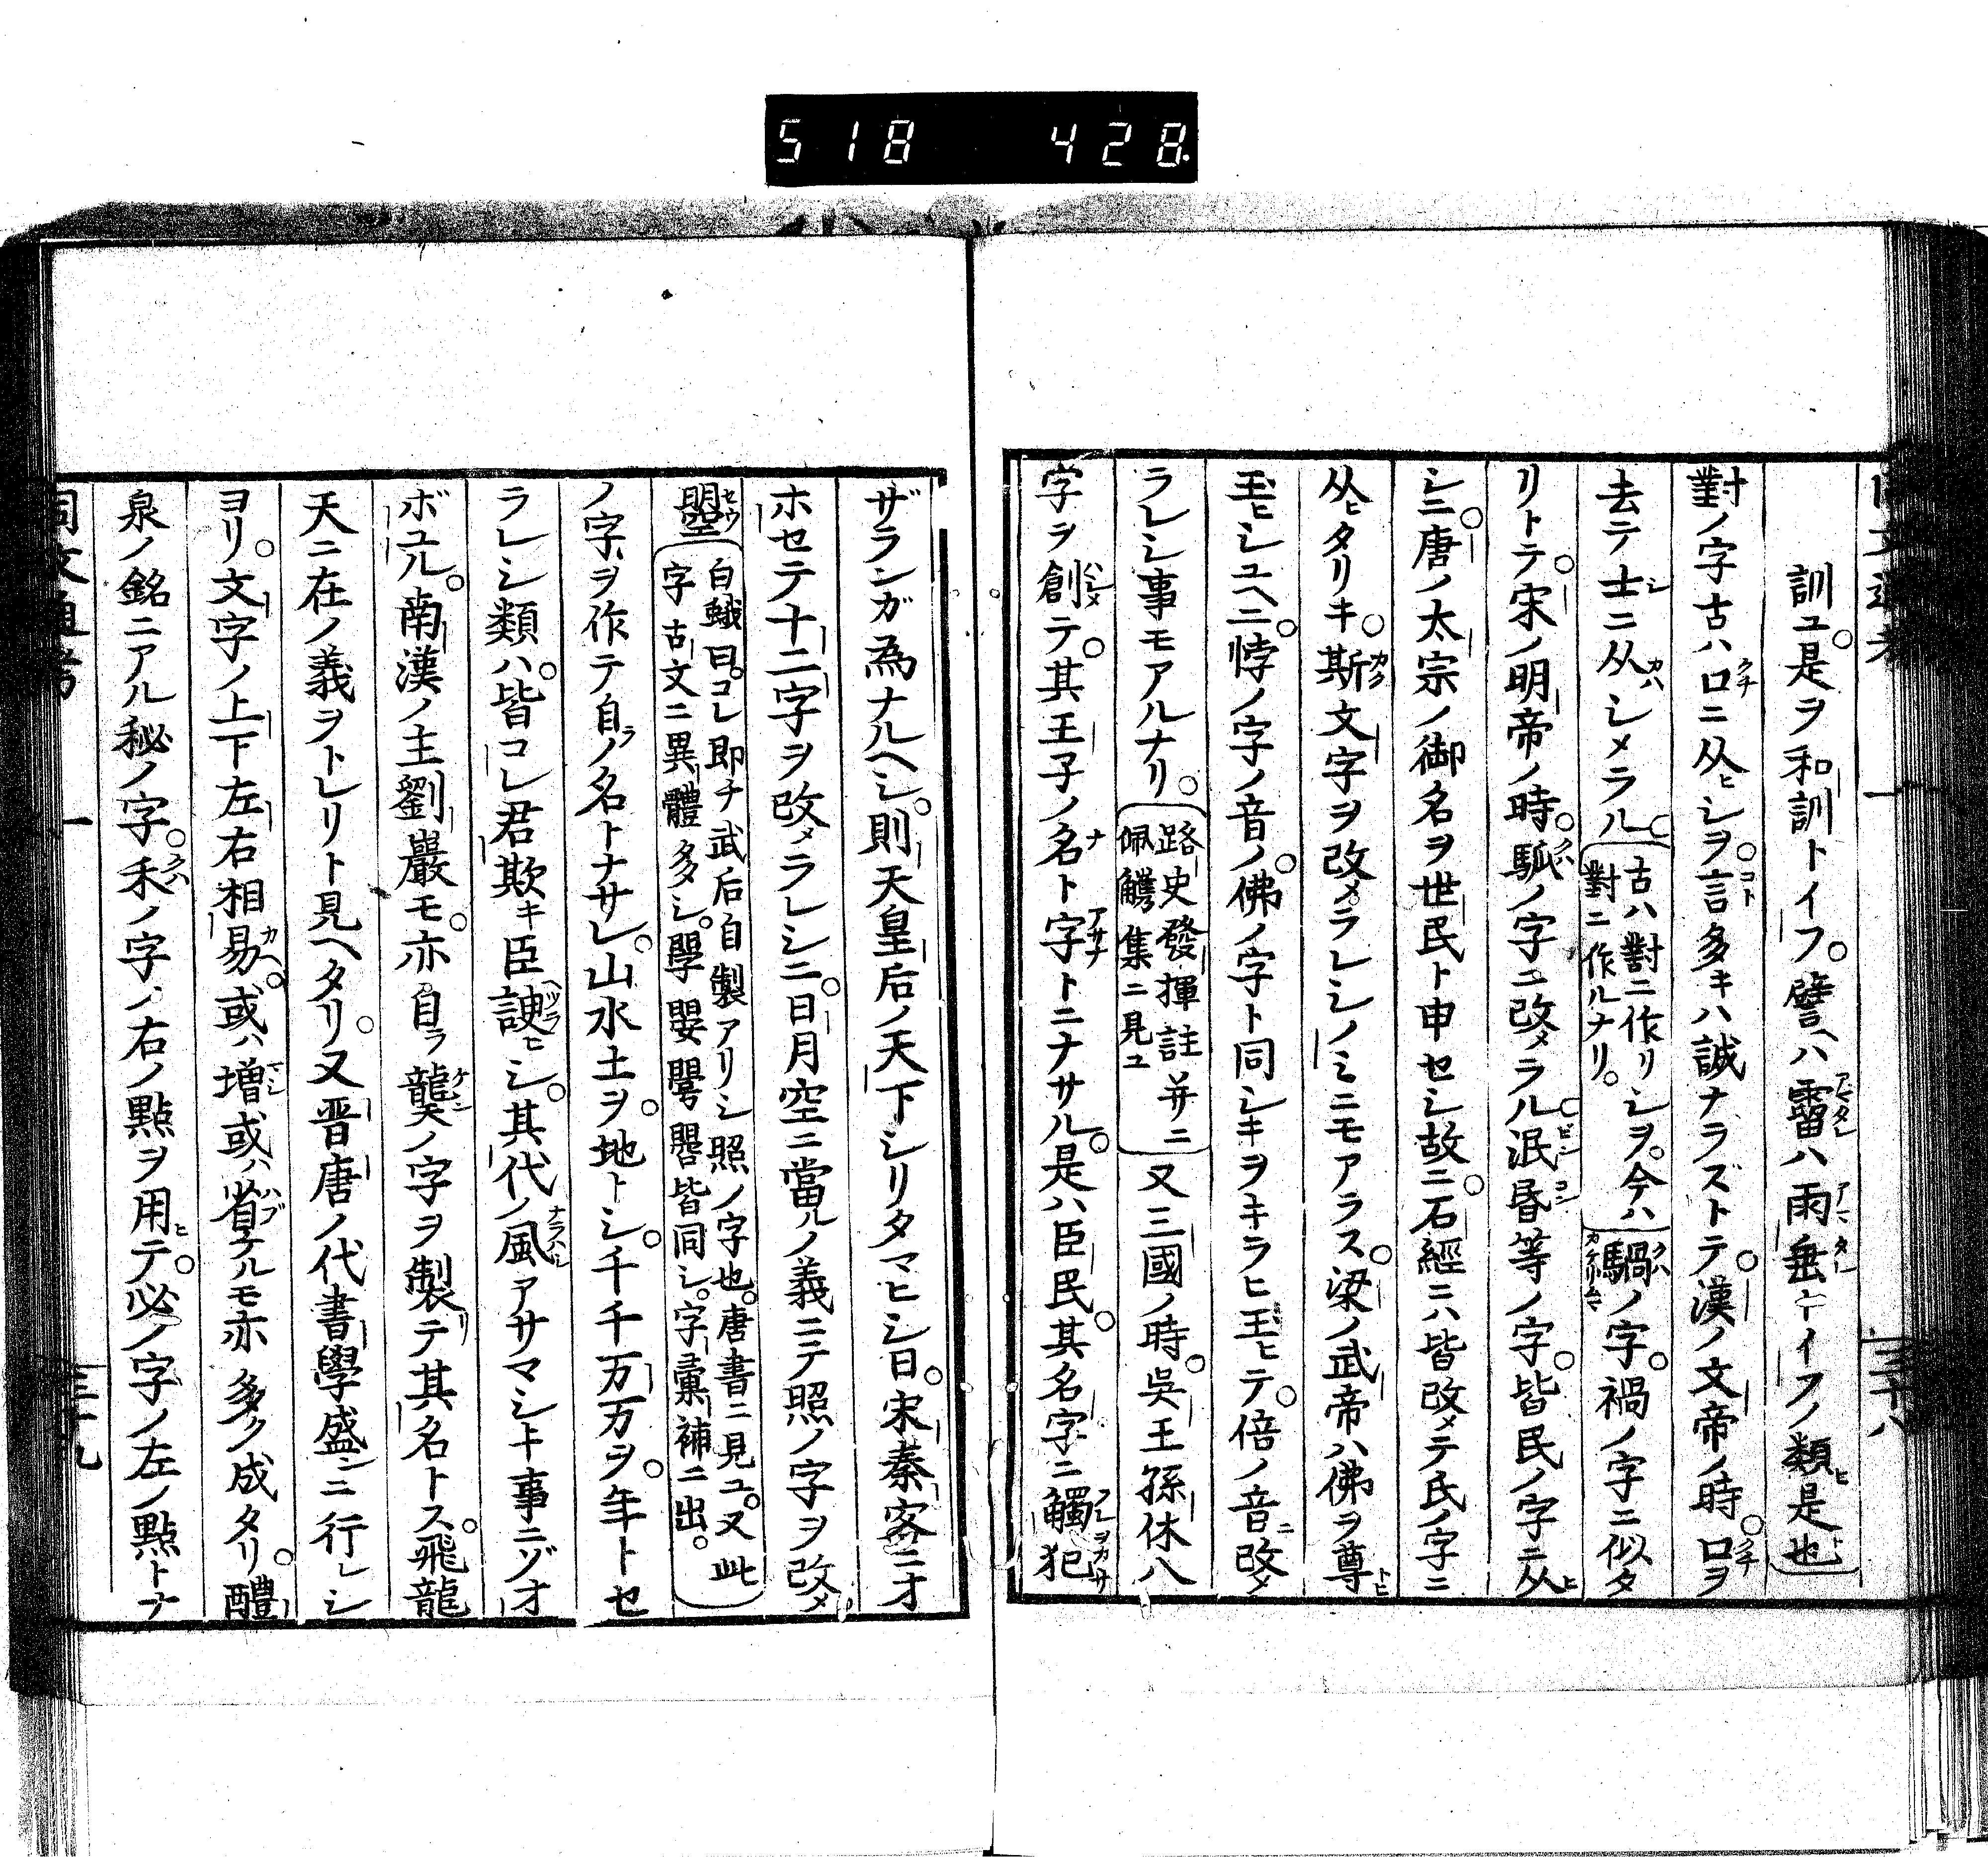 518 428
訓ユ是ヲ和訓トイフ譬ハ霤ハ雨垂トイフノ類是也
對ノ字古ハ口ニ从ヒシヲ言多キハ誠ナラズトテ漢ノ文帝ノ時口ヲ
去テ士ニ从シメラル古ハ對ニ作リシヲ今ハ對ニ作ルナリ。騧ノ字禍ノ字ニ似タ
リトテ宋ノ明帝ノ時䯄ノ字ニ改メラル泯昬等ノ字皆民ノ字ニ从ヒ
シニ唐ノ太宗ノ御名ヲ世民ト申セシ故ニ石經ニハ皆改メテ氏ノ字ニ
从ヒタリキ斯文字ヲ改メラレシノミニモアラス梁ノ武帝ハ佛ヲ尊ヒ
玉ヒシユヘニ悖ノ字ノ音ノ佛ノ字ト同シキヲキラヒ玉ヒテ倍ノ音ニ改メ
ラレシ事モアルナリ路史發揮註并ニ佩觿集ニ見ユ又三國ノ時吳王孫休八
字ヲ創テ其王子ノ名ト字トニナサル是ハ臣民其名字ニ觸犯
ザランガ為ナルヘシ則天皇后ノ天下シリタマヒシ日宋秦客ニオ
ホセテ十二字ヲ改メラレシニ日月空ニ當ルノ義ニテ照ノ字ヲ改メ
曌白蛾曰コレ即チ武后自製アリシ照ノ字也唐書ニ見ユ又此字古文ニ異體多シ皆同シ字彙補ニ出。
ノ字ヲ作テ自ラノ名トナサレ山水土ヲ地トシ千千万万ヲ年トセ
ラレシ類ハ皆コレ君欺キ臣諛ヒシ其代ノ風アサマシキ事ニゾオ
ボユル南漢ノ主劉巖モ亦自ラ龑ノ字ヲ製リテ其名トス飛龍
天ニ在ノ義ヲトレリト見ヘタリ又晋唐ノ代書學盛ンニ行レシ
ヨリ文字ノ上下左右相易ヘ或ハ增シ或ハ省ケルモ亦多ク成タリ醴
泉ノ銘ニアル秘ノ字禾ノ字ノ右ノ點ヲ用ヒテ必ノ字ノ左ノ點トナ
同文通考 一 三十九